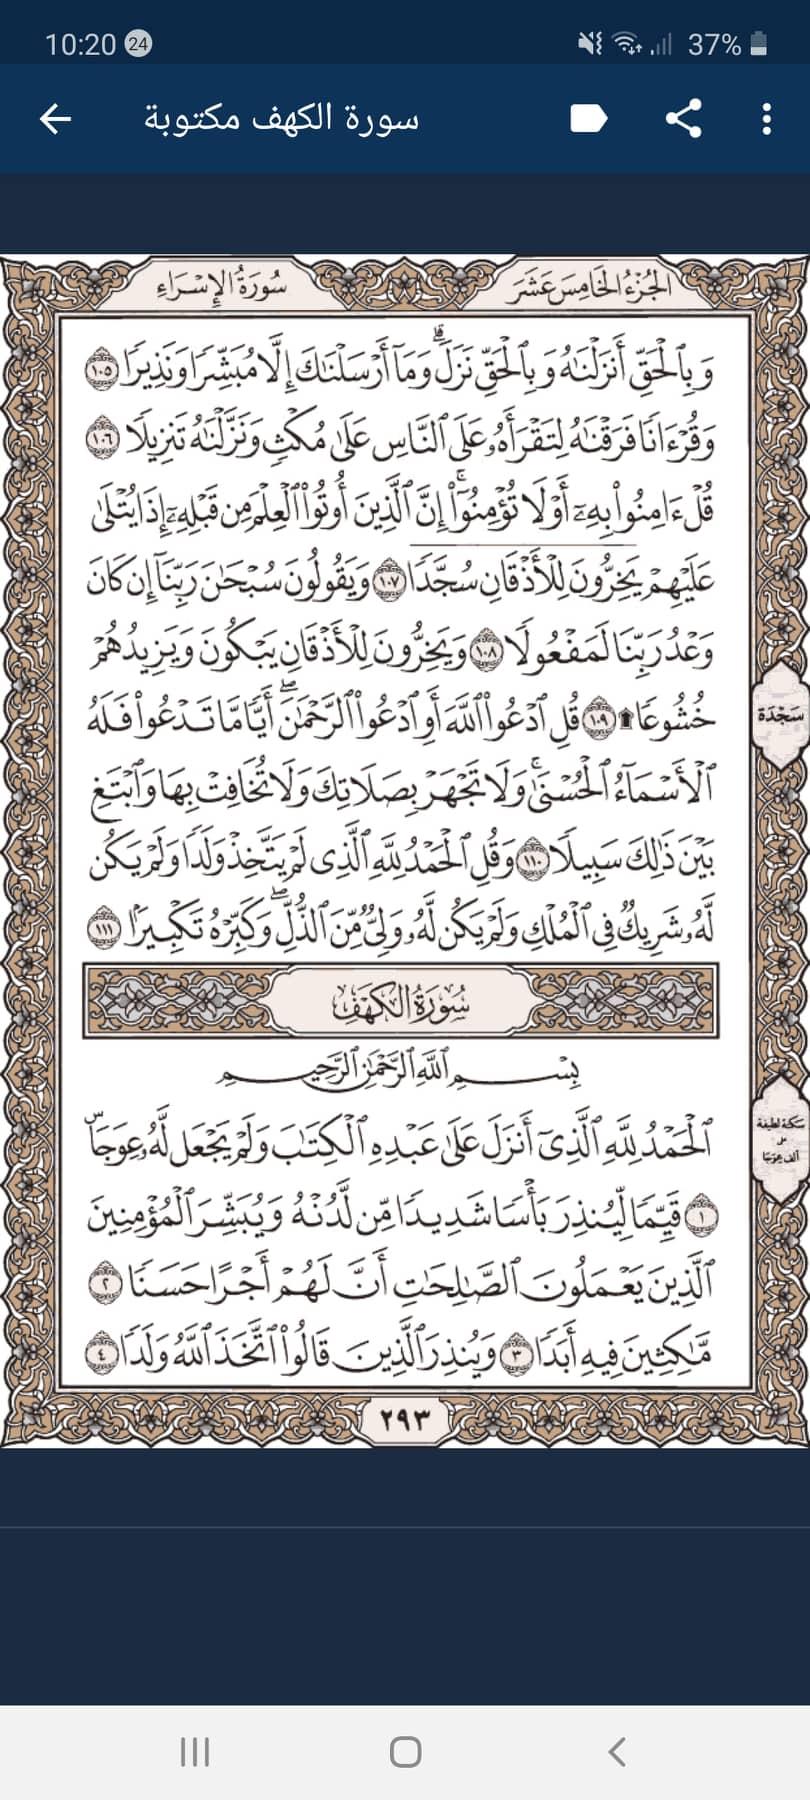 10:20 24 37%
سورة الكهف مكتوبة
الجُزْءُ الخَامِسَ عَشَرَ سُورَةُ الإِسْرَاءِ
وَبِٱلْحَقِّ أَنزَلْنَٰهُ وَبِٱلْحَقِّ نَزَلَۗ وَمَآ أَرْسَلْنَٰكَ إِلَّا مُبَشِّرًا وَنَذِيرًا ١٠٥
وَقُرْءَانًا فَرَقْنَٰهُ لِتَقْرَأَهُۥ عَلَى ٱلنَّاسِ عَلَىٰ مُكْثٍ وَنَزَّلْنَٰهُ تَنزِيلًا ١٠٦
قُلْ ءَامِنُوا۟ بِهِۦٓ أَوْ لَا تُؤْمِنُوٓا۟ۚ إِنَّ ٱلَّذِينَ أُوتُوا۟ ٱلْعِلْمَ مِن قَبْلِهِۦٓ إِذَا يُتْلَىٰ
عَلَيْهِمْ يَخِرُّونَ لِلْأَذْقَانِ سُجَّدًا ١٠٧ وَيَقُولُونَ سُبْحَٰنَ رَبِّنَآ إِن كَانَ
وَعْدُ رَبِّنَا لَمَفْعُولًا ١٠٨ وَيَخِرُّونَ لِلْأَذْقَانِ يَبْكُونَ وَيَزِيدُهُمْ
خُشُوعًا ١٠٩ قُلِ ٱدْعُوا۟ ٱللَّهَ أَوِ ٱدْعُوا۟ ٱلرَّحْمَٰنَۖ أَيًّا مَّا تَدْعُوا۟ فَلَهُ
سَجْدَة
ٱلْأَسْمَآءُ ٱلْحُسْنَىٰۚ وَلَا تَجْهَرْ بِصَلَاتِكَ وَلَا تُخَافِتْ بِهَا وَٱبْتَغِ
بَيْنَ ذَٰلِكَ سَبِيلًا ١١٠ وَقُلِ ٱلْحَمْدُ لِلَّهِ ٱلَّذِى لَمْ يَتَّخِذْ وَلَدًا وَلَمْ يَكُن
لَّهُۥ شَرِيكٌ فِى ٱلْمُلْكِ وَلَمْ يَكُن لَّهُۥ وَلِىٌّ مِّنَ ٱلذُّلِّۖ وَكَبِّرْهُ تَكْبِيرًۢا ١١١
سُورَةُ الكَهْفِ
بِسْمِ ٱللَّهِ ٱلرَّحْمَٰنِ ٱلرَّحِيمِ
ٱلْحَمْدُ لِلَّهِ ٱلَّذِىٓ أَنزَلَ عَلَىٰ عَبْدِهِ ٱلْكِتَٰبَ وَلَمْ يَجْعَل لَّهُۥ عِوَجَاۜ
سكتة لطيفة
على
ألف عوجا
١ قَيِّمًا لِّيُنذِرَ بَأْسًا شَدِيدًا مِّن لَّدُنْهُ وَيُبَشِّرَ ٱلْمُؤْمِنِينَ
ٱلَّذِينَ يَعْمَلُونَ ٱلصَّٰلِحَٰتِ أَنَّ لَهُمْ أَجْرًا حَسَنًا ٢
مَّٰكِثِينَ فِيهِ أَبَدًا ٣ وَيُنذِرَ ٱلَّذِينَ قَالُوا۟ ٱتَّخَذَ ٱللَّهُ وَلَدًا ٤
٢٩٣